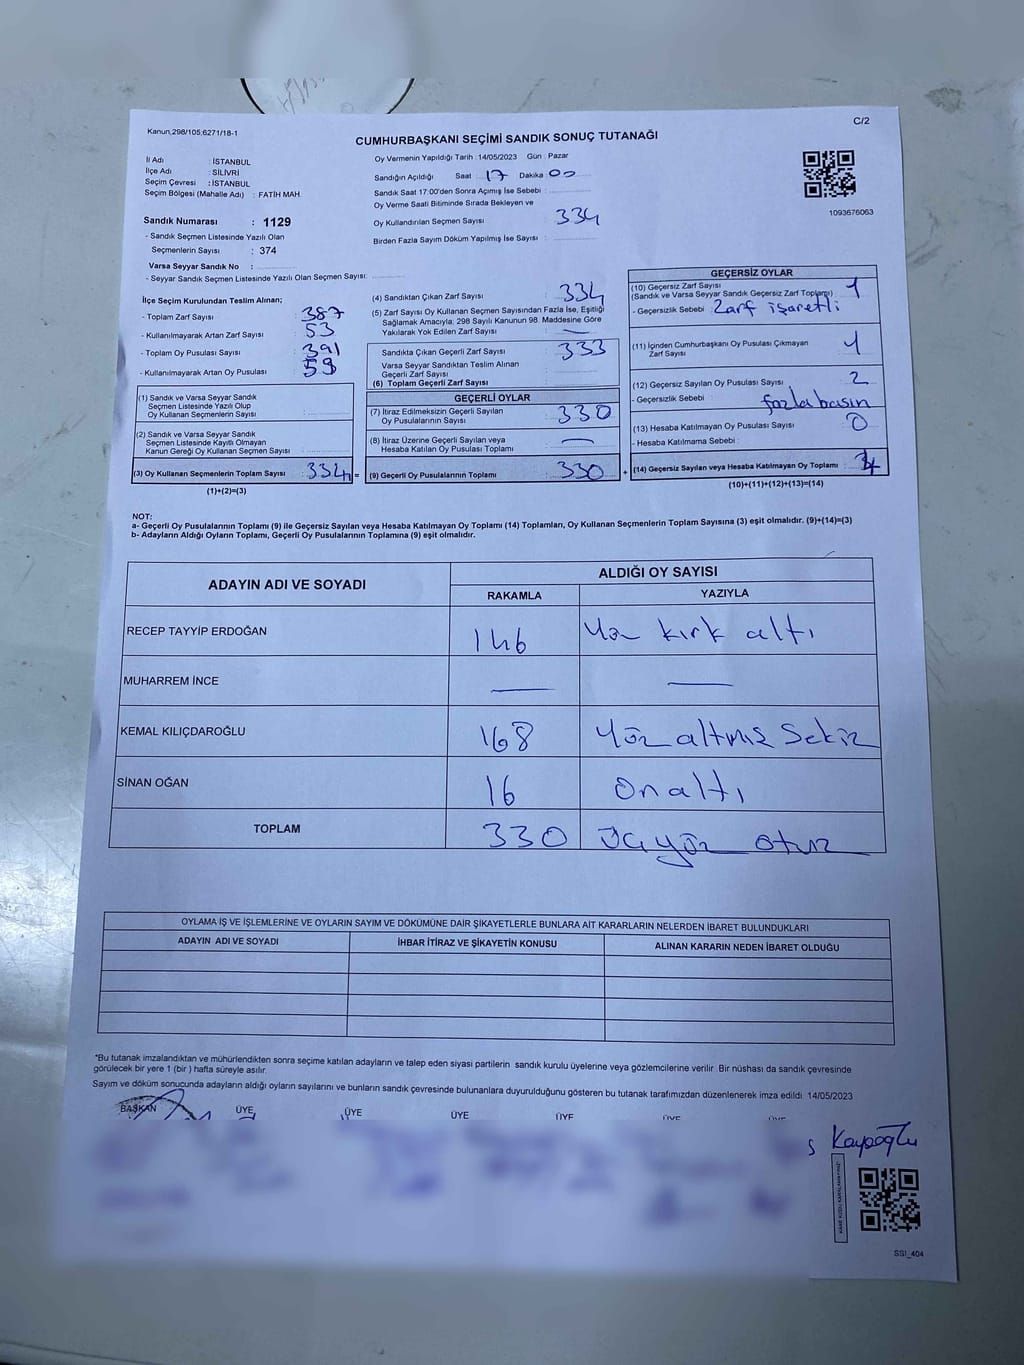 Kanun,298/105;6271/18-1
C/2
CUMHURBAŞKANI SEÇİMİ SANDIK SONUÇ TUTANAĞI
İl Adı : İSTANBUL
İlçe Adı : SİLİVRİ
Seçim Çevresi : İSTANBUL
Seçim Bölgesi (Mahalle Adı) : FATİH MAH.
Sandık Numarası : 1129
- Sandık Seçmen Listesinde Yazılı Olan
Seçmenlerin Sayısı : 374
Varsa Seyyar Sandık No :
- Seyyar Sandık Seçmen Listesinde Yazılı Olan Seçmen Sayısı:
Oy Vermenin Yapıldığı Tarih : 14/05/2023 Gün : Pazar
Sandığın Açıldığı Saat 17 Dakika 00
Sandık Saat 17:00'den Sonra Açımış İse Sebebi :
Oy Verme Saati Bitiminde Sırada Bekleyen ve
Oy Kullandırılan Seçmen Sayısı : 334
Birden Fazla Sayım Döküm Yapılmış İse Sayısı :
1093676063
İlçe Seçim Kurulundan Teslim Alınan;
- Toplam Zarf Sayısı : 387
- Kullanılmayarak Artan Zarf Sayısı : 53
- Toplam Oy Pusulası Sayısı : 391
- Kullanılmayarak Artan Oy Pusulası :
(1) Sandık ve Varsa Seyyar Sandık
Seçmen Listesinde Yazılı Olup
Oy Kullanan Seçmenlerin Sayısı :
(2) Sandık ve Varsa Seyyar Sandık
Seçmen Listesinde Kayıtlı Olmayan
Kanun Gereği Oy Kullanan Seçmen Sayısı :
(3) Oy Kullanan Seçmenlerin Toplam Sayısı : 334 =
(1)+(2)=(3)
(4) Sandıktan Çıkan Zarf Sayısı : 334
(5) Zarf Sayısı Oy Kullanan Seçmen Sayısından Fazla İse, Eşitliği
Sağlamak Amacıyla; 298 Sayılı Kanunun 98. Maddesine Göre
Yakılarak Yok Edilen Zarf Sayısı : —
Sandıkta Çıkan Geçerli Zarf Sayısı : 333
Varsa Seyyar Sandıktan Teslim Alınan
Geçerli Zarf Sayısı :
(6) Toplam Geçerli Zarf Sayısı :
GEÇERLİ OYLAR
(7) İtiraz Edilmeksizin Geçerli Sayılan
Oy Pusulalarının Sayısı : 330
(8) İtiraz Üzerine Geçerli Sayılan veya
Hesaba Katılan Oy Pusulası Toplamı : —
(9) Geçerli Oy Pusulalarının Toplamı : 330 +
GEÇERSİZ OYLAR
(10) Geçersiz Zarf Sayısı
(Sandık ve Varsa Seyyar Sandık Geçersiz Zarf Toplamı) : 1
- Geçersizlik Sebebi : Zarf işaretli
(11) İçinden Cumhurbaşkanı Oy Pusulası Çıkmayan
Zarf Sayısı : 1
(12) Geçersiz Sayılan Oy Pusulası Sayısı : 2
- Geçersizlik Sebebi : fazla basın
(13) Hesaba Katılmayan Oy Pusulası Sayısı : 0
- Hesaba Katılmama Sebebi :
(14) Geçersiz Sayılan veya Hesaba Katılmayan Oy Toplamı :
(10)+(11)+(12)+(13)=(14)
NOT:
a- Geçerli Oy Pusulalarının Toplamı (9) ile Geçersiz Sayılan veya Hesaba Katılmayan Oy Toplamı (14) Toplamları, Oy Kullanan Seçmenlerin Toplam Sayısına (3) eşit olmalıdır. (9)+(14)=(3)
b- Adayların Aldığı Oyların Toplamı, Geçerli Oy Pusulalarının Toplamına (9) eşit olmalıdır.
ADAYIN ADI VE SOYADI
ALDIĞI OY SAYISI
RAKAMLA YAZIYLA
RECEP TAYYİP ERDOĞAN 146 Yüz kırk altı
MUHARREM İNCE — —
KEMAL KILIÇDAROĞLU 168 Yüz altmış sekiz
SİNAN OĞAN 16 on altı
TOPLAM 330 Üçyüz otuz
OYLAMA İŞ VE İŞLEMLERİNE VE OYLARIN SAYIM VE DÖKÜMÜNE DAİR ŞİKAYETLERLE BUNLARA AİT KARARLARIN NELERDEN İBARET BULUNDUKLARI
ADAYIN ADI VE SOYADI İHBAR İTİRAZ VE ŞİKAYETİN KONUSU ALINAN KARARIN NEDEN İBARET OLDUĞU
*Bu tutanak imzalandıktan ve mühürlendikten sonra seçime katılan adayların ve talep eden siyasi partilerin sandık kurulu üyelerine veya gözlemcilerine verilir. Bir nüshası da sandık çevresinde
görülecek bir yere 1 (bir ) hafta süreyle asılır.
Sayım ve döküm sonucunda adayların aldığı oyların sayılarını ve bunların sandık çevresinde bulunanlara duyurulduğunu gösteren bu tutanak tarafımızdan düzenlenerek imza edildi. 14/05/2023
BAŞKAN ÜYE ÜYE ÜYE ÜYE ÜYE ÜYE
Kayaoğlu
SSI_404